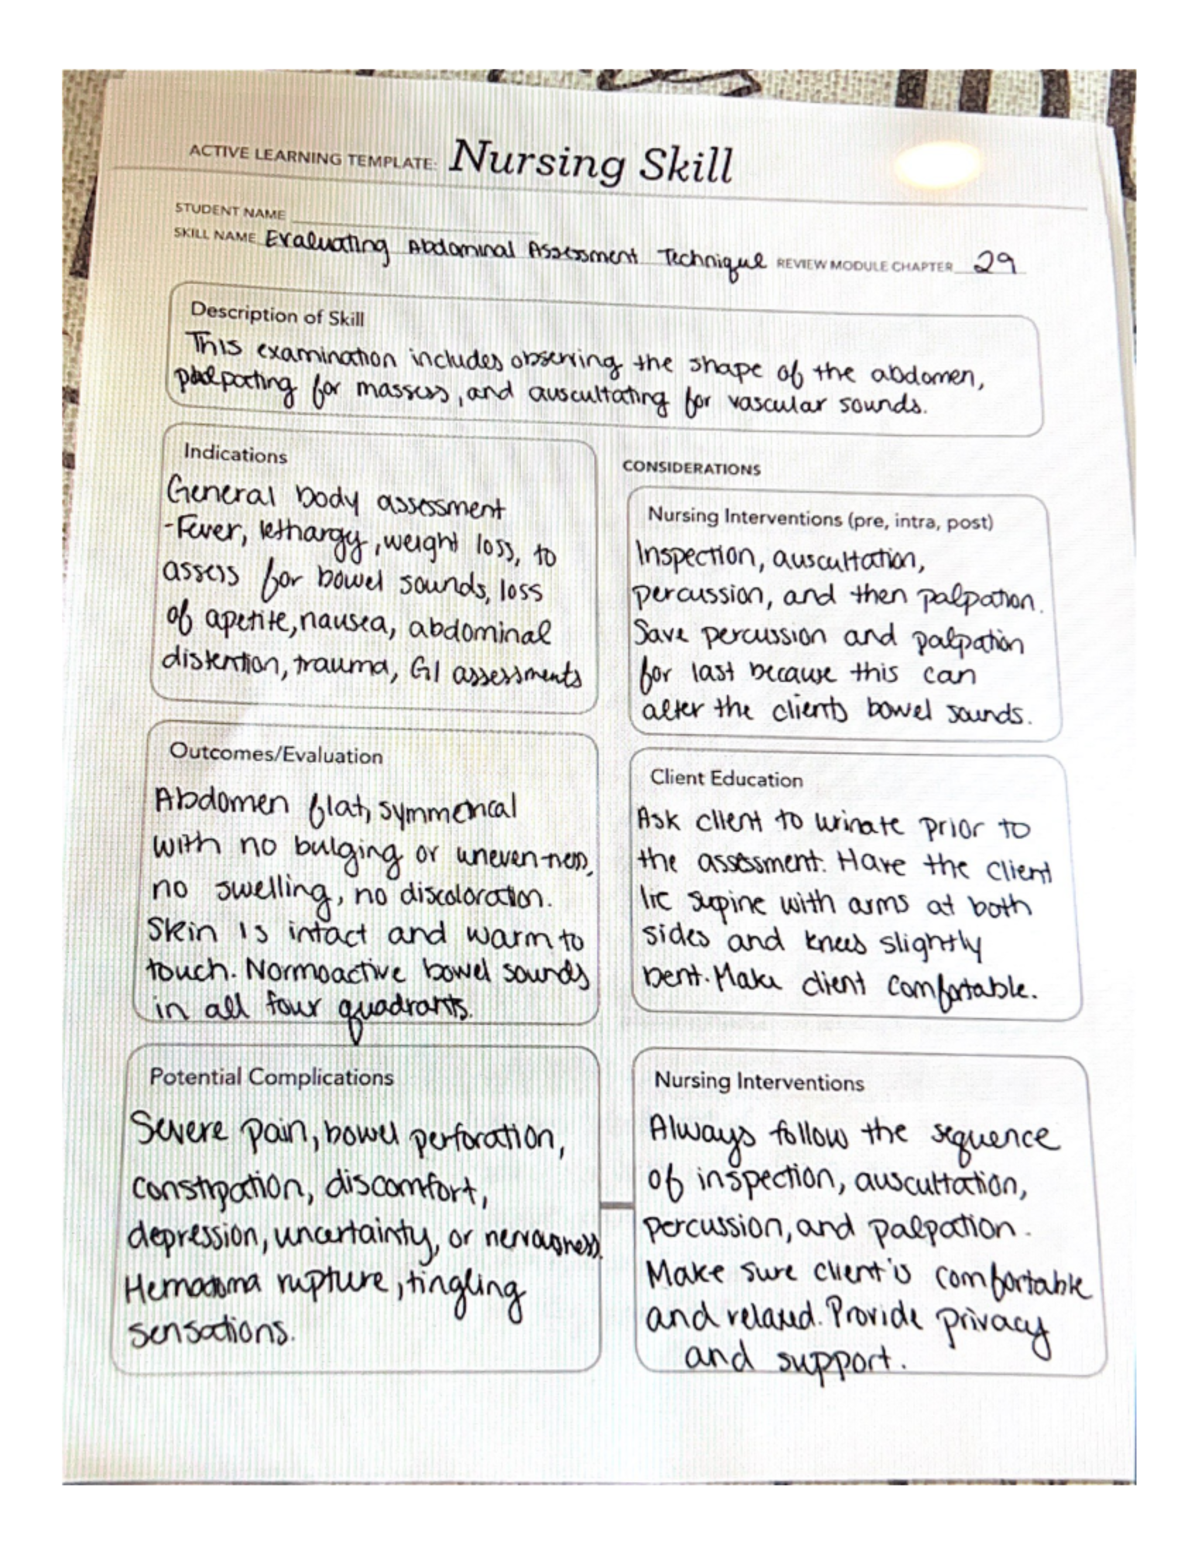 ACTIVE LEARNING TEMPLATE: Nursing Skill
STUDENT NAME
SKILL NAME Evaluating Abdominal Assessment Technique REVIEW MODULE CHAPTER 29
Description of Skill
This examination includes observing the shape of the abdomen,
palpating for masses, and auscultating for vascular sounds.
Indications
General body assessment
-Fever, lethargy, weight loss, to
assess for bowel sounds, loss
of apetite, nausea, abdominal
distention, trauma, GI assessments
CONSIDERATIONS
Nursing Interventions (pre, intra, post)
Inspection, auscultation,
percussion, and then palpation.
Save percussion and palpation
for last because this can
alter the clients bowel sounds.
Outcomes/Evaluation
Abdomen flat, symmetrical
with no bulging or unevenness,
no swelling, no discoloration.
Skin is intact and warm to
touch. Normoactive bowel sounds
in all four quadrants.
Client Education
Ask client to urinate prior to
the assessment. Have the client
lie supine with arms at both
sides and knees slightly
bent. Make client comfortable.
Potential Complications
Severe pain, bowel perforation,
constipation, discomfort,
depression, uncertainty, or nervousness.
Hematoma rupture, tingling
sensations.
Nursing Interventions
Always follow the sequence
of inspection, auscultation,
percussion, and palpation.
Make sure client is comfortable
and relaxed. Provide privacy
and support.